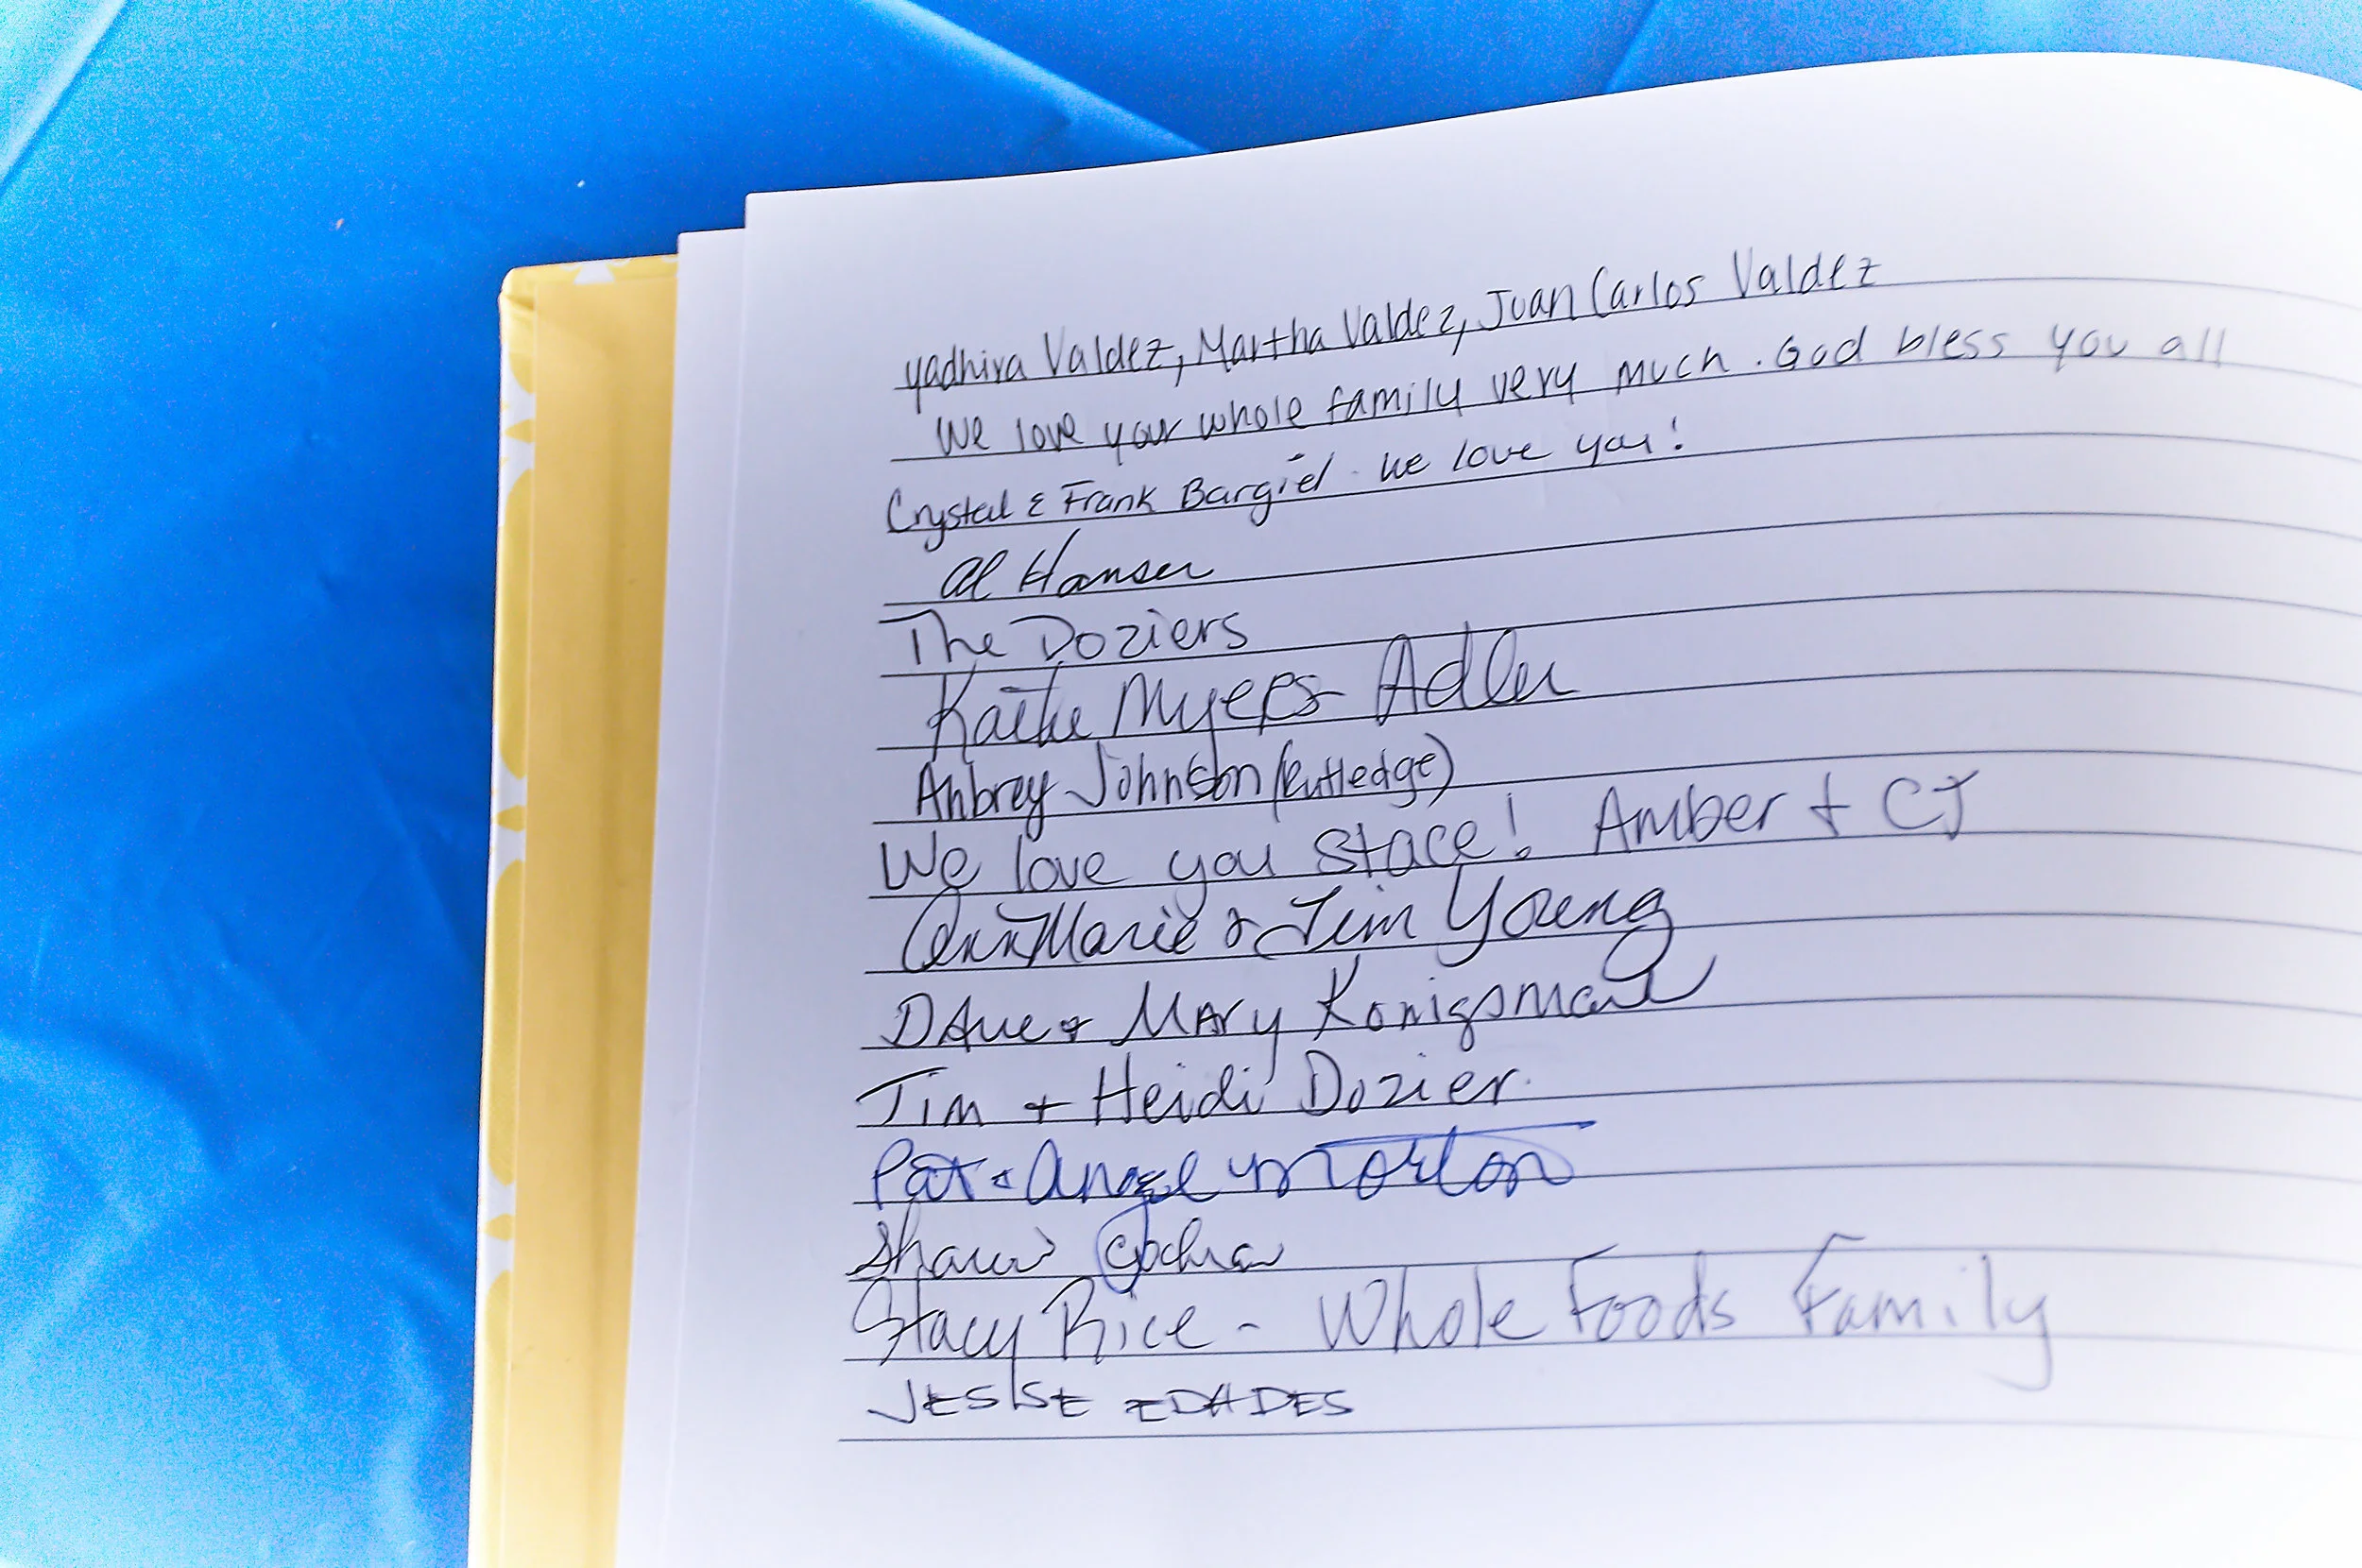 Yadhira Valdez, Martha Valdez, Juan Carlos Valdez
We love your whole family very much. God bless you all
Crystal & Frank Bargiel - we love you!
Al Hansen
The Doziers
Kathe Myers-Adler
Aubrey Johnson (Rutledge)
We love you Stace! Amber + CJ
AnnMarie & Jim Young
Dave & Mary Konigsmark
Tim + Heidi Dozier
Pat & Angel Morton
Shawn
Stacy Rice - Whole Foods Family
JESSE EDADES